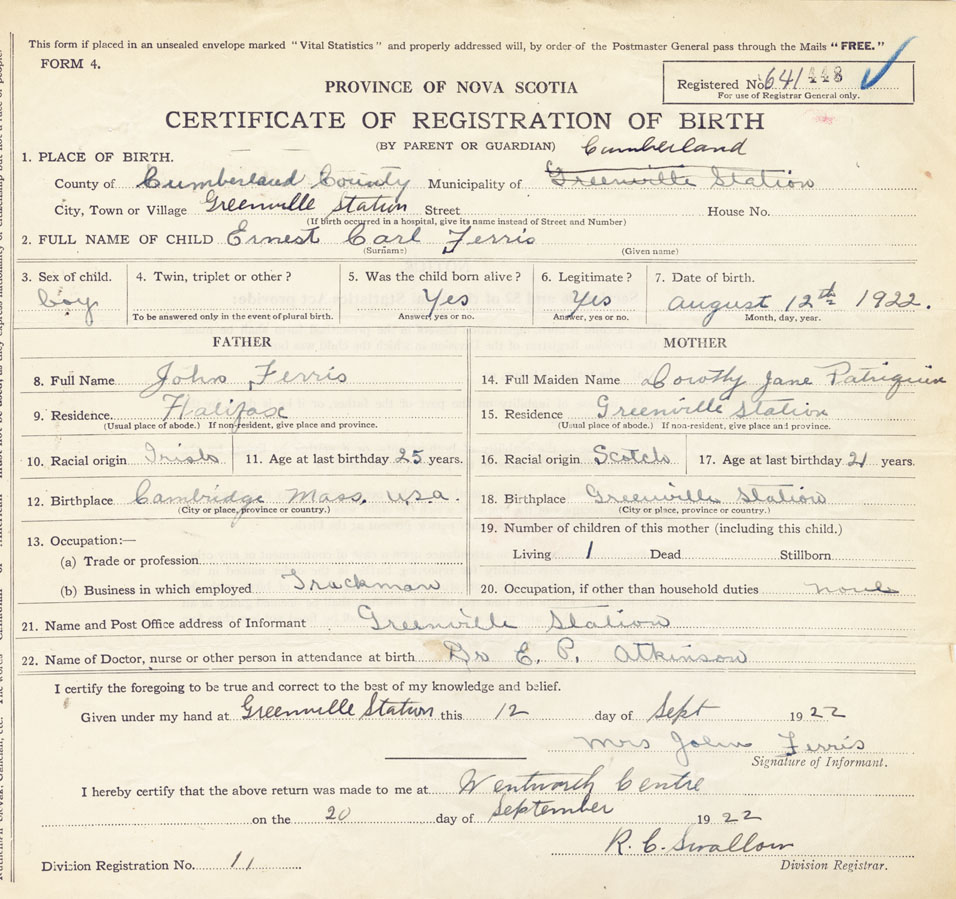 This form if placed in an unsealed envelope marked "Vital Statistics" and properly addressed will, by order of the Postmaster General pass through the Mails "FREE."
FORM 4.
Registered No. 641448
For use of Registrar General only.
PROVINCE OF NOVA SCOTIA
CERTIFICATE OF REGISTRATION OF BIRTH
(BY PARENT OR GUARDIAN) Cumberland
1. PLACE OF BIRTH.
County of Cumberland County Municipality of Greenville Station
City, Town or Village Greenville Station Street House No.
(If birth occurred in a hospital, give its name instead of Street and Number)
2. FULL NAME OF CHILD Ernest Carl Ferris
(Surname) (Given name)
3. Sex of child. 4. Twin, triplet or other? 5. Was the child born alive? 6. Legitimate? 7. Date of birth.
boy Yes Yes August 12th 1922.
To be answered only in the event of plural birth. Answer, yes or no. Answer, yes or no. Month, day, year.
FATHER MOTHER
8. Full Name John Ferris 14. Full Maiden Name Dorothy Jane Patriquin
9. Residence. Halifax 15. Residence Greenville Station
(Usual place of abode.) If non-resident, give place and province. (Usual place of abode.) If non-resident, give place and province.
10. Racial origin Irish 11. Age at last birthday 25 years. 16. Racial origin Scotch 17. Age at last birthday 21 years.
12. Birthplace Cambridge Mass. U.S.A. 18. Birthplace Greenville Station
(City or place, province or country.) (City or place, province or country.)
19. Number of children of this mother (including this child.)
13. Occupation:—
Living 1 Dead Stillborn
(a) Trade or profession
(b) Business in which employed Truckman 20. Occupation, if other than household duties none
21. Name and Post Office address of Informant Greenville Station
22. Name of Doctor, nurse or other person in attendance at birth Dr E. P. Atkinson
I certify the foregoing to be true and correct to the best of my knowledge and belief.
Given under my hand at Greenville Station this 12 day of Sept 1922
Mrs John Ferris
Signature of Informant.
I hereby certify that the above return was made to me at Wentworth Centre
on the 20 day of September 1922
R. C. Swallow
Division Registration No. 11 Division Registrar.